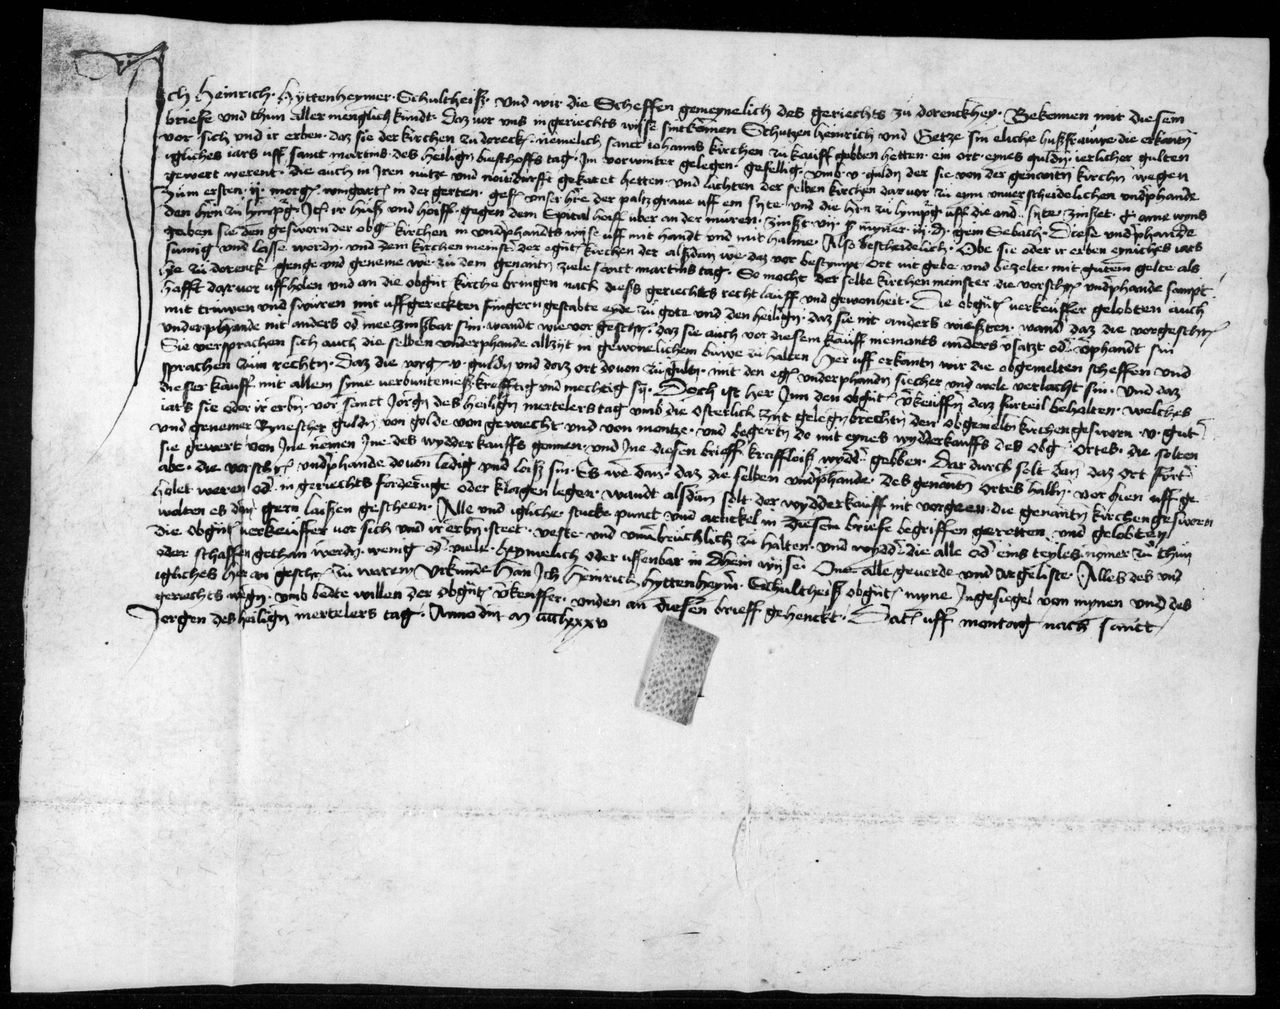 Ich Heinrich Hyttenheymer Schultheiß und wir die Scheffen gemeynelich des geriechts zu dorenckhey Bekennen mit diesem
brieffe und thun aller menglich kundt daz vor uns in geriechts wyse sint komen Schutzen heinrich und Getze sin eliche hußfrauwe die erkantn
vor sich und ir erben daz sie der kirchen zu dorenck nemelich sanct iohanns kirchen zu kauff gebben hetten ein ort eines guldn ierlicher gulten
igliches iars uff sanct martins des heilign bieschoffs tag Im vorwinter gelegen gefellig umb v guldn der sie von der genantn kirchn wegen
gewert werent die auch in Iren nutze und noitdurfft gekaret hetten und lachten der selben kirchen dar vor zu eym unverscheidelichen undphande
zum ersten ij morg wingarts in der gerten geff unser hre der paltzgrave uff ein syte und die hrn zu lympg uff die and syte zinßet ane wyns
den hrn zu lympg Itm ir huß und hoiff gegen dem Spital hoiff uber an der muren zinßt
gaben sie den gesworn der obg kirchen in undphandts wyse uff mit handt und mit halme Also bescheidelich Obe sie oder ir erben eyniches iars
sumig und lasse wordn und dem kirchenmeinster der ognt kirchen der alßdan we daz vor bestympt ort nit gebe und bezelte mit gutem gelte als
hie zu dorenck genge und geneme we zu dem genantn ziele sanct martins tag So mocht der selbe kirchenmeinster die vorschr undphande sampt
hafft dar vor uffholen und an die obgnt kirche bringen nach dieß geriechts recht lauff und gewonheit Die obgnt verkeuffer gelobten auch
mit truwen und swuren mit uffgereckten fingern gestabte eyde zu gote und den heilign daz sie nit anders wießten wand daz die vorgeschr
underphande nit anders od mee zinßbar sin wandt wie vor geschr daz sie auch vor diesem kauff niemants anders vsatzt od vphandt sin
Sie versprachen sich auch die selben underphande allzyt in gewonelichem buwe zu halten Her uff erkantn wir die obgemelten scheffen und
sprachen zum rechtn Daz die vorg v guldn und daz ort do von zu gultn mit den eg underphandn siecher und wole verlacht sin und daz
dieser kauff mit allem syme verbunteniß krefftig und mechtig sy Doch ist her Inn den obgnt vkeuffn daz furteil behalten welches
iars sie oder ir erbn vor sanct Jorgn des heilign mertelers tag umb die osterlich zyt gelegn brechtn den obgemeltn kirchengesworn v gut
und genemer Rynescher guldn von golde von gewecht und von montze und begertn do mit eynes wydderkauffs des obg Ortes die solten
sie gewert von Ine nemen Ine des wydderkauffs gonnen und Ine diesen brieff krafftloiß wydd gebben Dar durch solt dan daz ort furt
abe die vorschr undphande do von ledig und loiß sin Es we dan daz die selben undphande des genantn ortes halbn vor hien uff ge
holet weren od in geriechts forderunge oder klagen legen wandt alsdan solt der wydderkauff nit vorgeen die genantn kirchengesworn
wolten es dan gern laißen gescheen Alle und igliche stucke punct und artickel in diesem brieffe begriffen geretten und gelobten
die obgnt verkeuffer vor sich und ir erbn steet veste und unverbruchlich zu halten und wydd die alle od eins teyles nomer zu thun
oder schaffen gethan werdn wenig od viele heymelich oder uffenbar in dhein wyse One alle geverde und argeliste Alles des und
igliches her an geschr zu warem Urkunde Han Ich Heinrich Hyttenheym Schultheiß obgnt myne Ingesiegel von mynen und des
geriechts wegn umb bedte willen der obgnt vkeuffer unden an diesen brieff gehenckt Dat uff montag nach sanct
Jorgen des heilign mertelers tag Anno dni m cccclxxxv